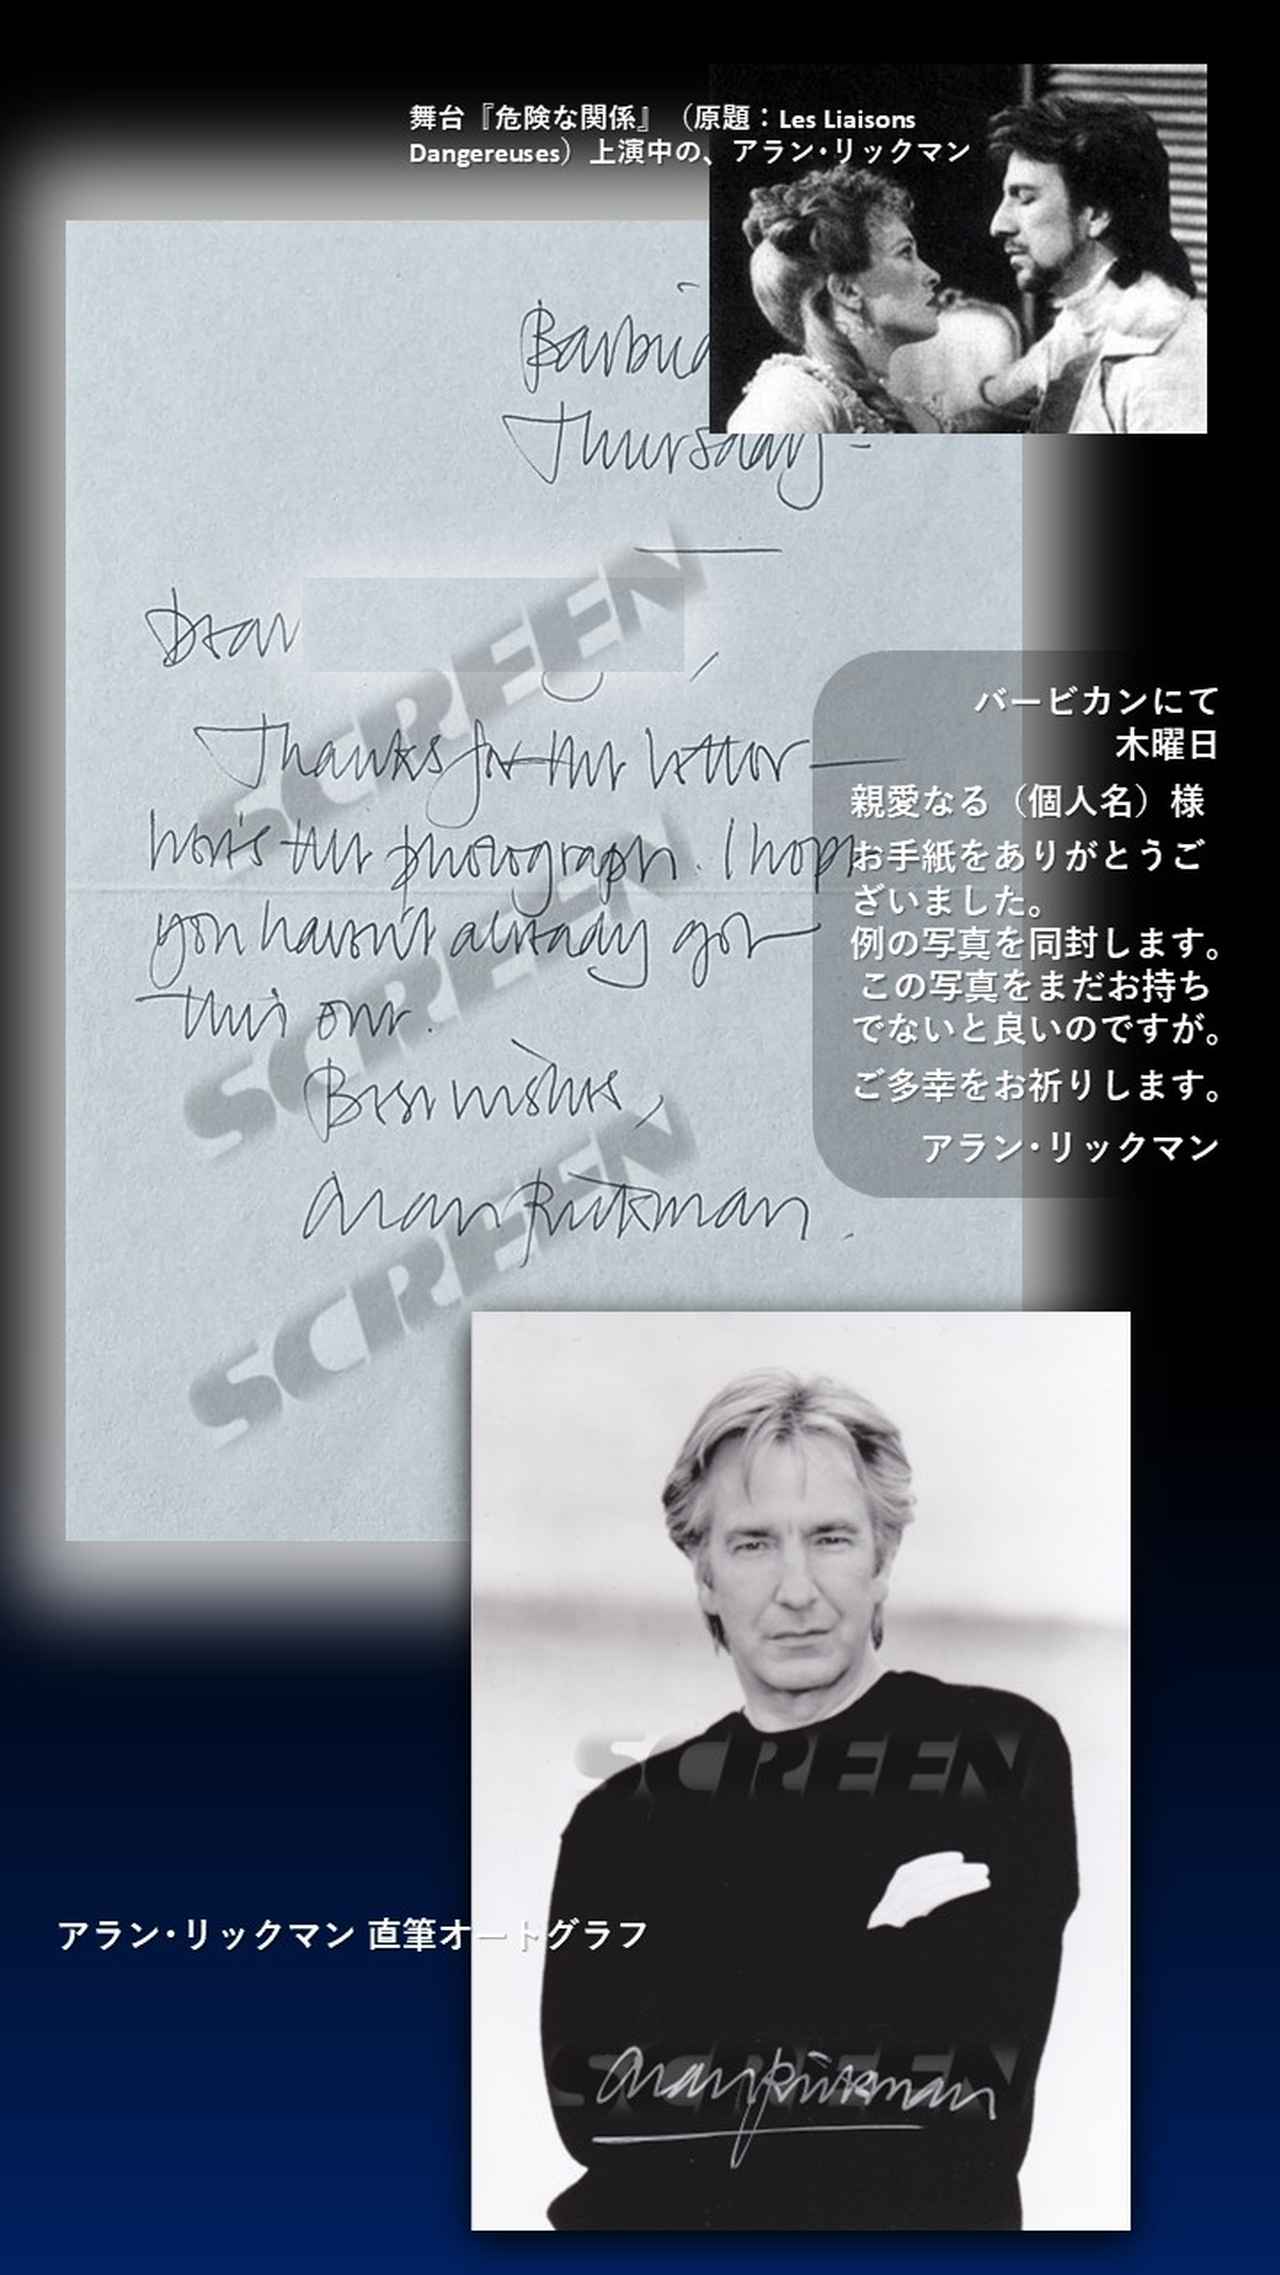 舞台『危険な関係』（原題：Les Liaisons
Dangereuses）上演中の、アラン･リックマン
Thursday -
Dear
Thanks for the letter —
here's the photograph. I hope
you haven't already got
this one.
Best wishes,
Alan Rickman.
バービカンにて
木曜日
親愛なる（個人名）様
お手紙をありがとうご
ざいました。
例の写真を同封します。
この写真をまだお持ち
でないと良いのですが。
ご多幸をお祈りします。
アラン･リックマン
SCREEN
SCREEN
SCREEN
SCREEN
アラン･リックマン 直筆オートグラフ
SCREEN
Alan Rickman